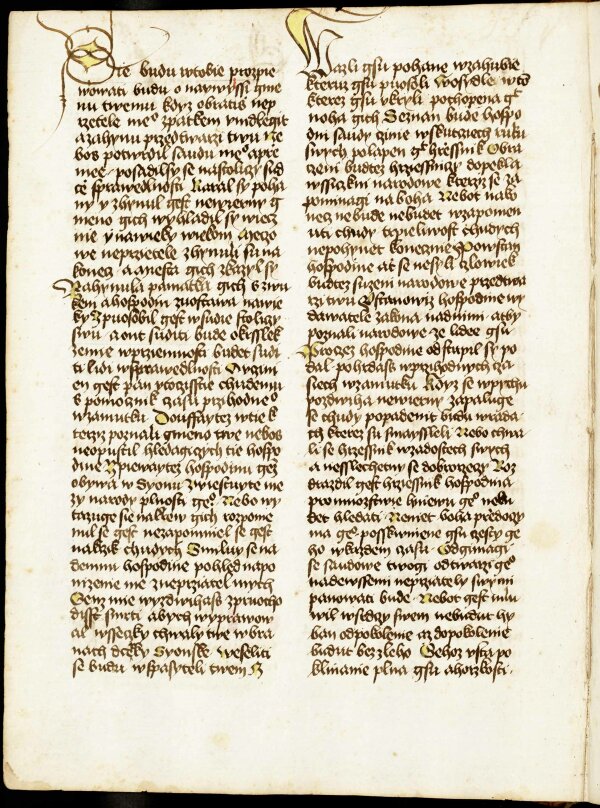 Sie budu wtobie prozpie
wowati budu o naywyssi gme
nu twemu kdyz obratis nep
rzetele meo zpatkem ymdlegit
azahynu przedtwarzi twu Ne
bos potwrdil saudu meo apre
mee posadilsy se nastolici sud
ce sprawedlnosti Karal sy poha
ny y zhynul gest newierny g
meno gich wyhladil sy wiecz
nie y nawieky wiekom Meczo
we neprzetele zhynuli su na
konecz a miesta gich zkazyl sy
Zahynula pamatka gich szwu
kem a hospodin zuostawa nawie
ky Przpuosobil gest wsudie stoliczy
swu a ont suditi bude okrslek
zemie wprziemnosti budet sudi
ti lidi wsprawedlnosti Uczini
en gest pan utocziste chudemu
s pomoznik czasu przihodneo
wzamutku Douffaytez wtie k
terzyz poznali gmeno twe nebos
neopustil hledagiczych tie hospo
dine Zpiewaytez hospodinu gez
obywa w Syonu Zwiestuyte me
zy narody pilnosti geo Nebo wy
tazuge sie nakrew gich rozpome
nul se gest nezapomniel se gest
nakrzik chudych Smiluy se na
demnu hospodine pohled napo
nizenie me z neprzatel mych
Genz mie wyzdwihass zprnocho
disst smrti abych wyprawow
al wsseczky chwaly twe wbra
nach dcery Syonske Weseliti
se budu wspasyteli twem
Wazli gsu pohane wzahubie
kteruz gsu pusobli Wosydle wto
kterez gsu ukryli pochopena gt
noha gich Seznan bude hospo
din saudy czinie wskutciech ruku
swych polapen gt hressnik Obra
czeni budtez hrzessniczy dopekla
wssiczkni narodowe kterzyz se za
pominagi na boha Nebot nako
necz nebude nebudet wzapomen
uti chudy trpieliwost chudych
nepohynet konecznie Powstan
hospodine at se nesyli czlowiek
budtez suzeni narodowe przedtwa
rzi twu Ustanowiz hospodine wy
dawatele zakona nadnimi aby
poznali narodowe ze lidee gsu
Proczez hospodine odstupil sy po
dal pohrdass wprzihodnych cza
siech wzamutku Kdyz se wpychu
pozdwiha newierny zapaluge
se chudy popadenit budu wrada
ch kterez su smayssleli Nebo chwa
li se hrzessnik wzadostech swych
a nesslechetny se dobrorzeczy Roz
drazdil gest hrzessnik hospodina
pro mnozstwie hniewu geo nebu
det hledati Neniet boha przedoczy
ma geo posskwrniene gsu czesty ge
ho wkazdem czasu Odgimagi
se saudowe twogi od twarzi geo
nadewssemi neprzately swymi
panowati bude Nebot gest mlu
wil wsrdczy swem nebudut hy
ban odpokolenie az dopokolenie
budut bez zleho Gehoz usta po
klinanie plna gsu a horzkosti